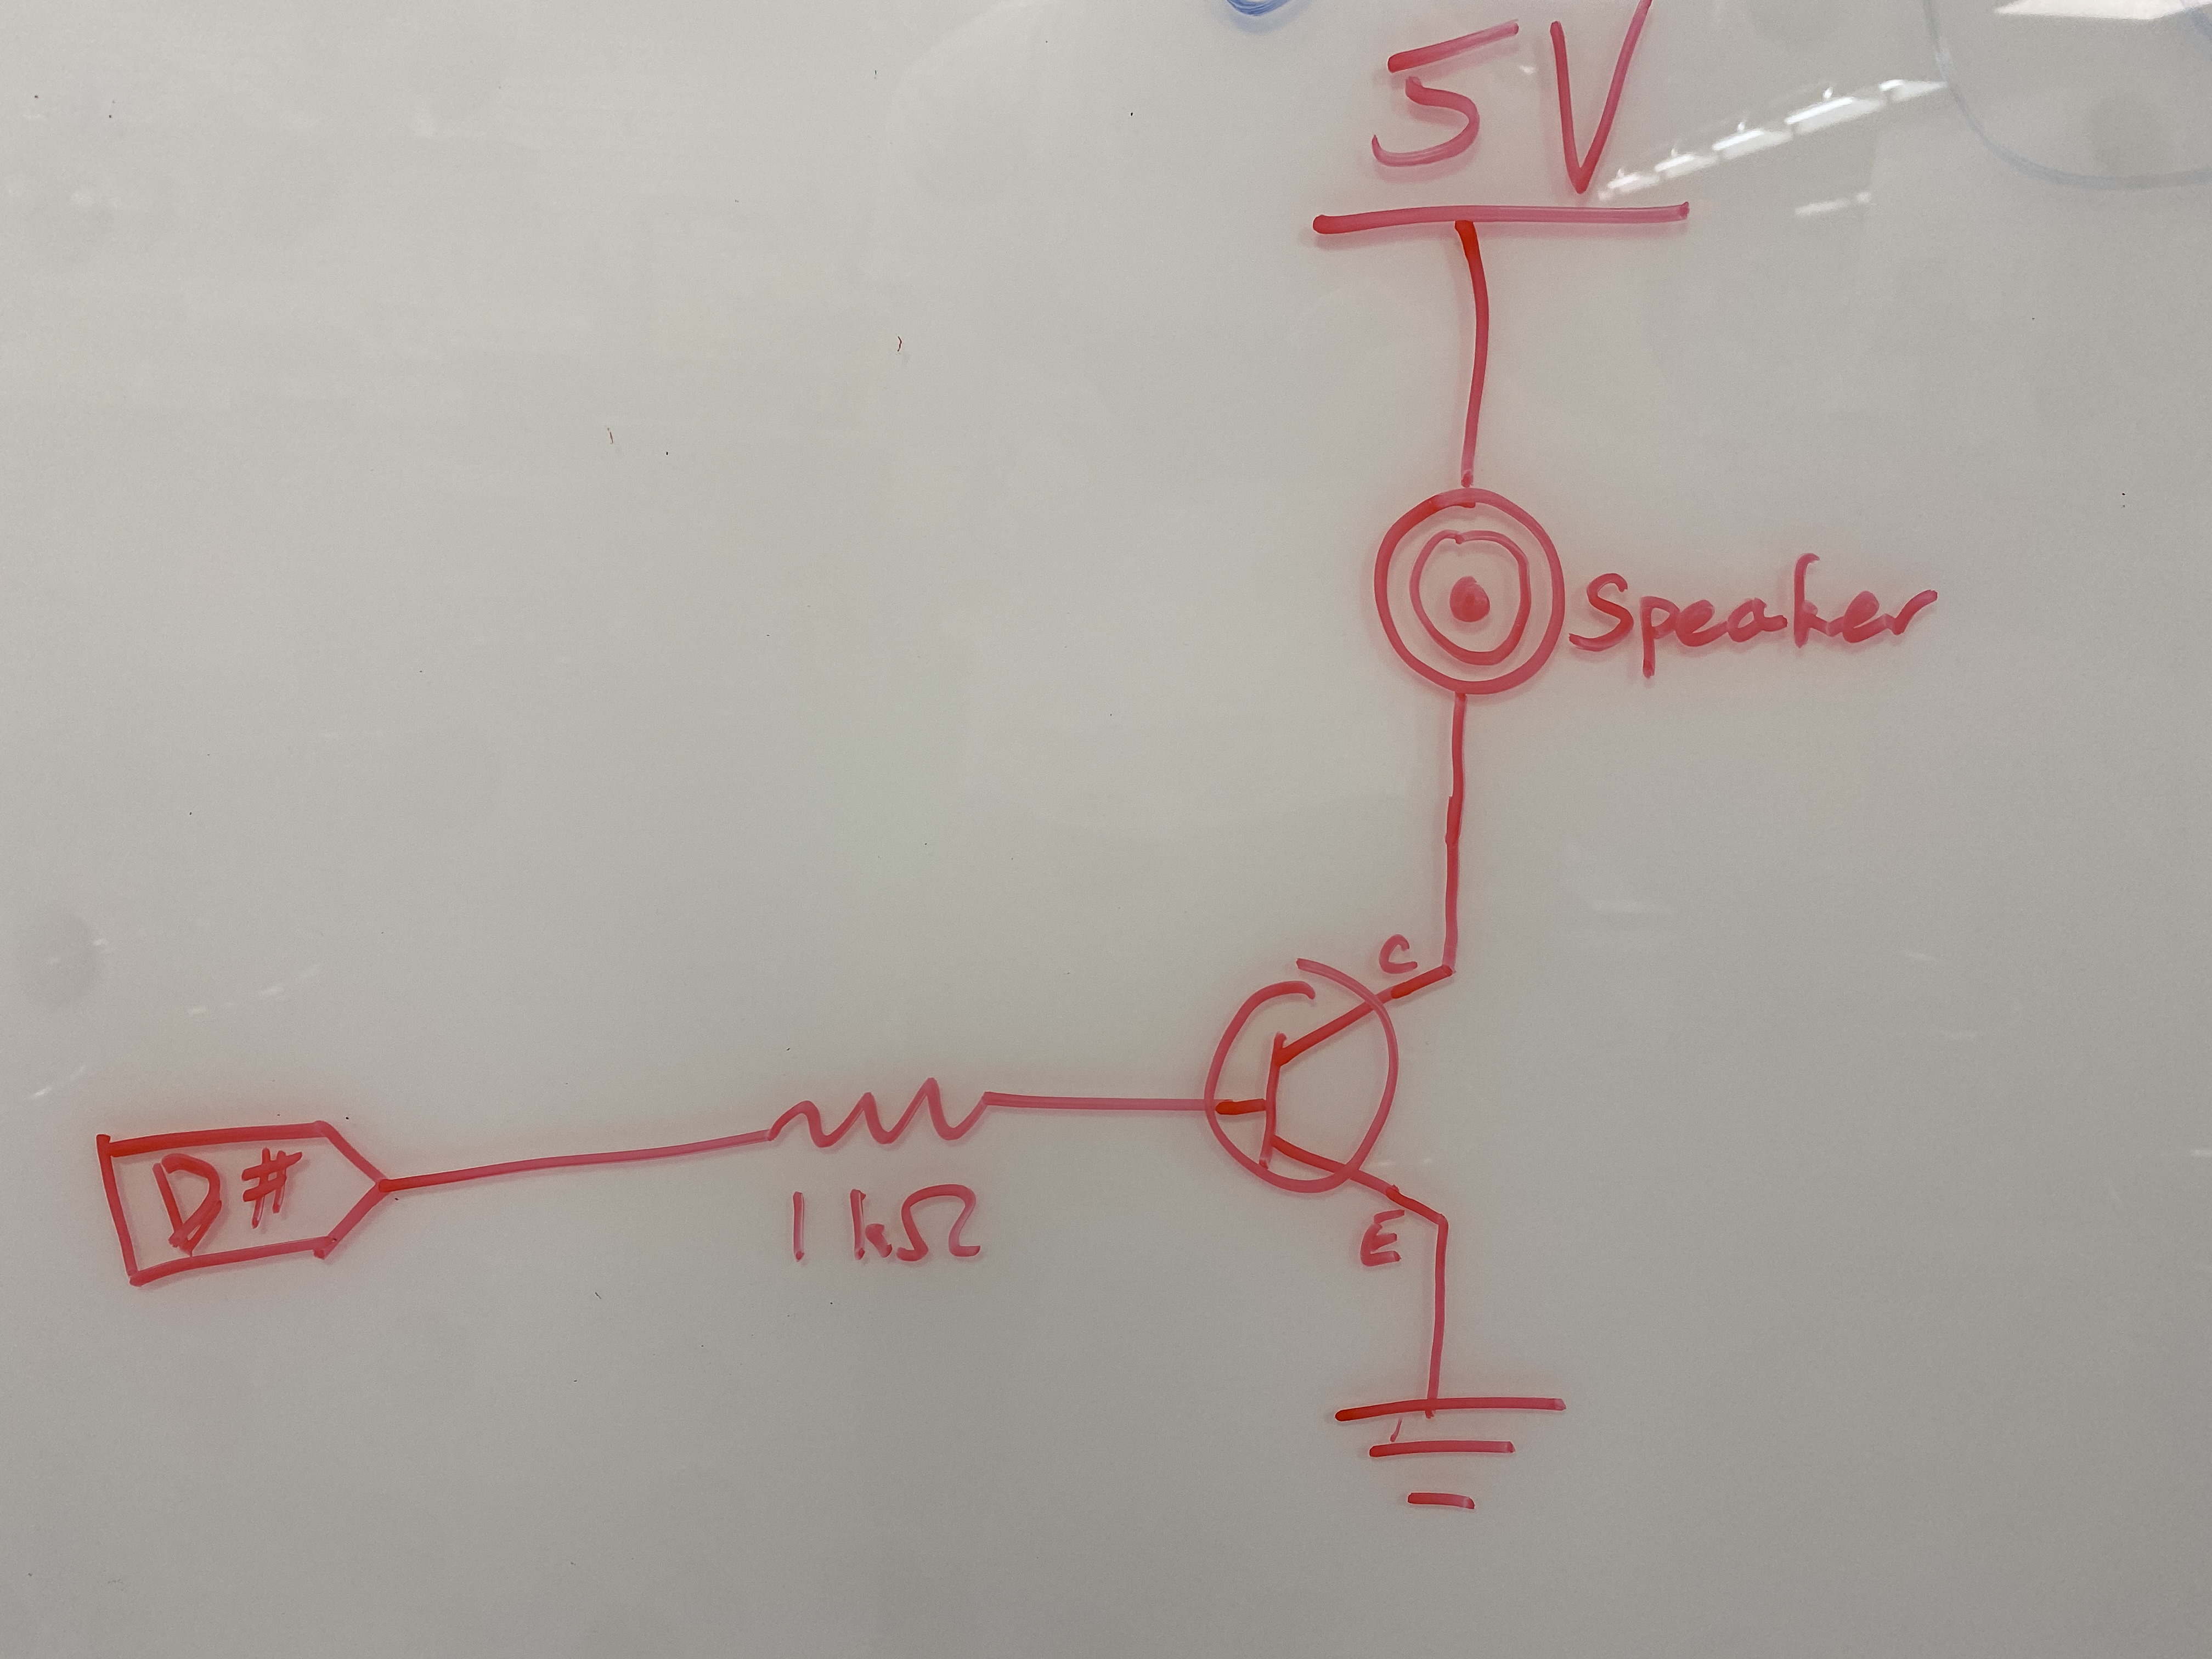 5V
Speaker
C
D#
1kΩ
E